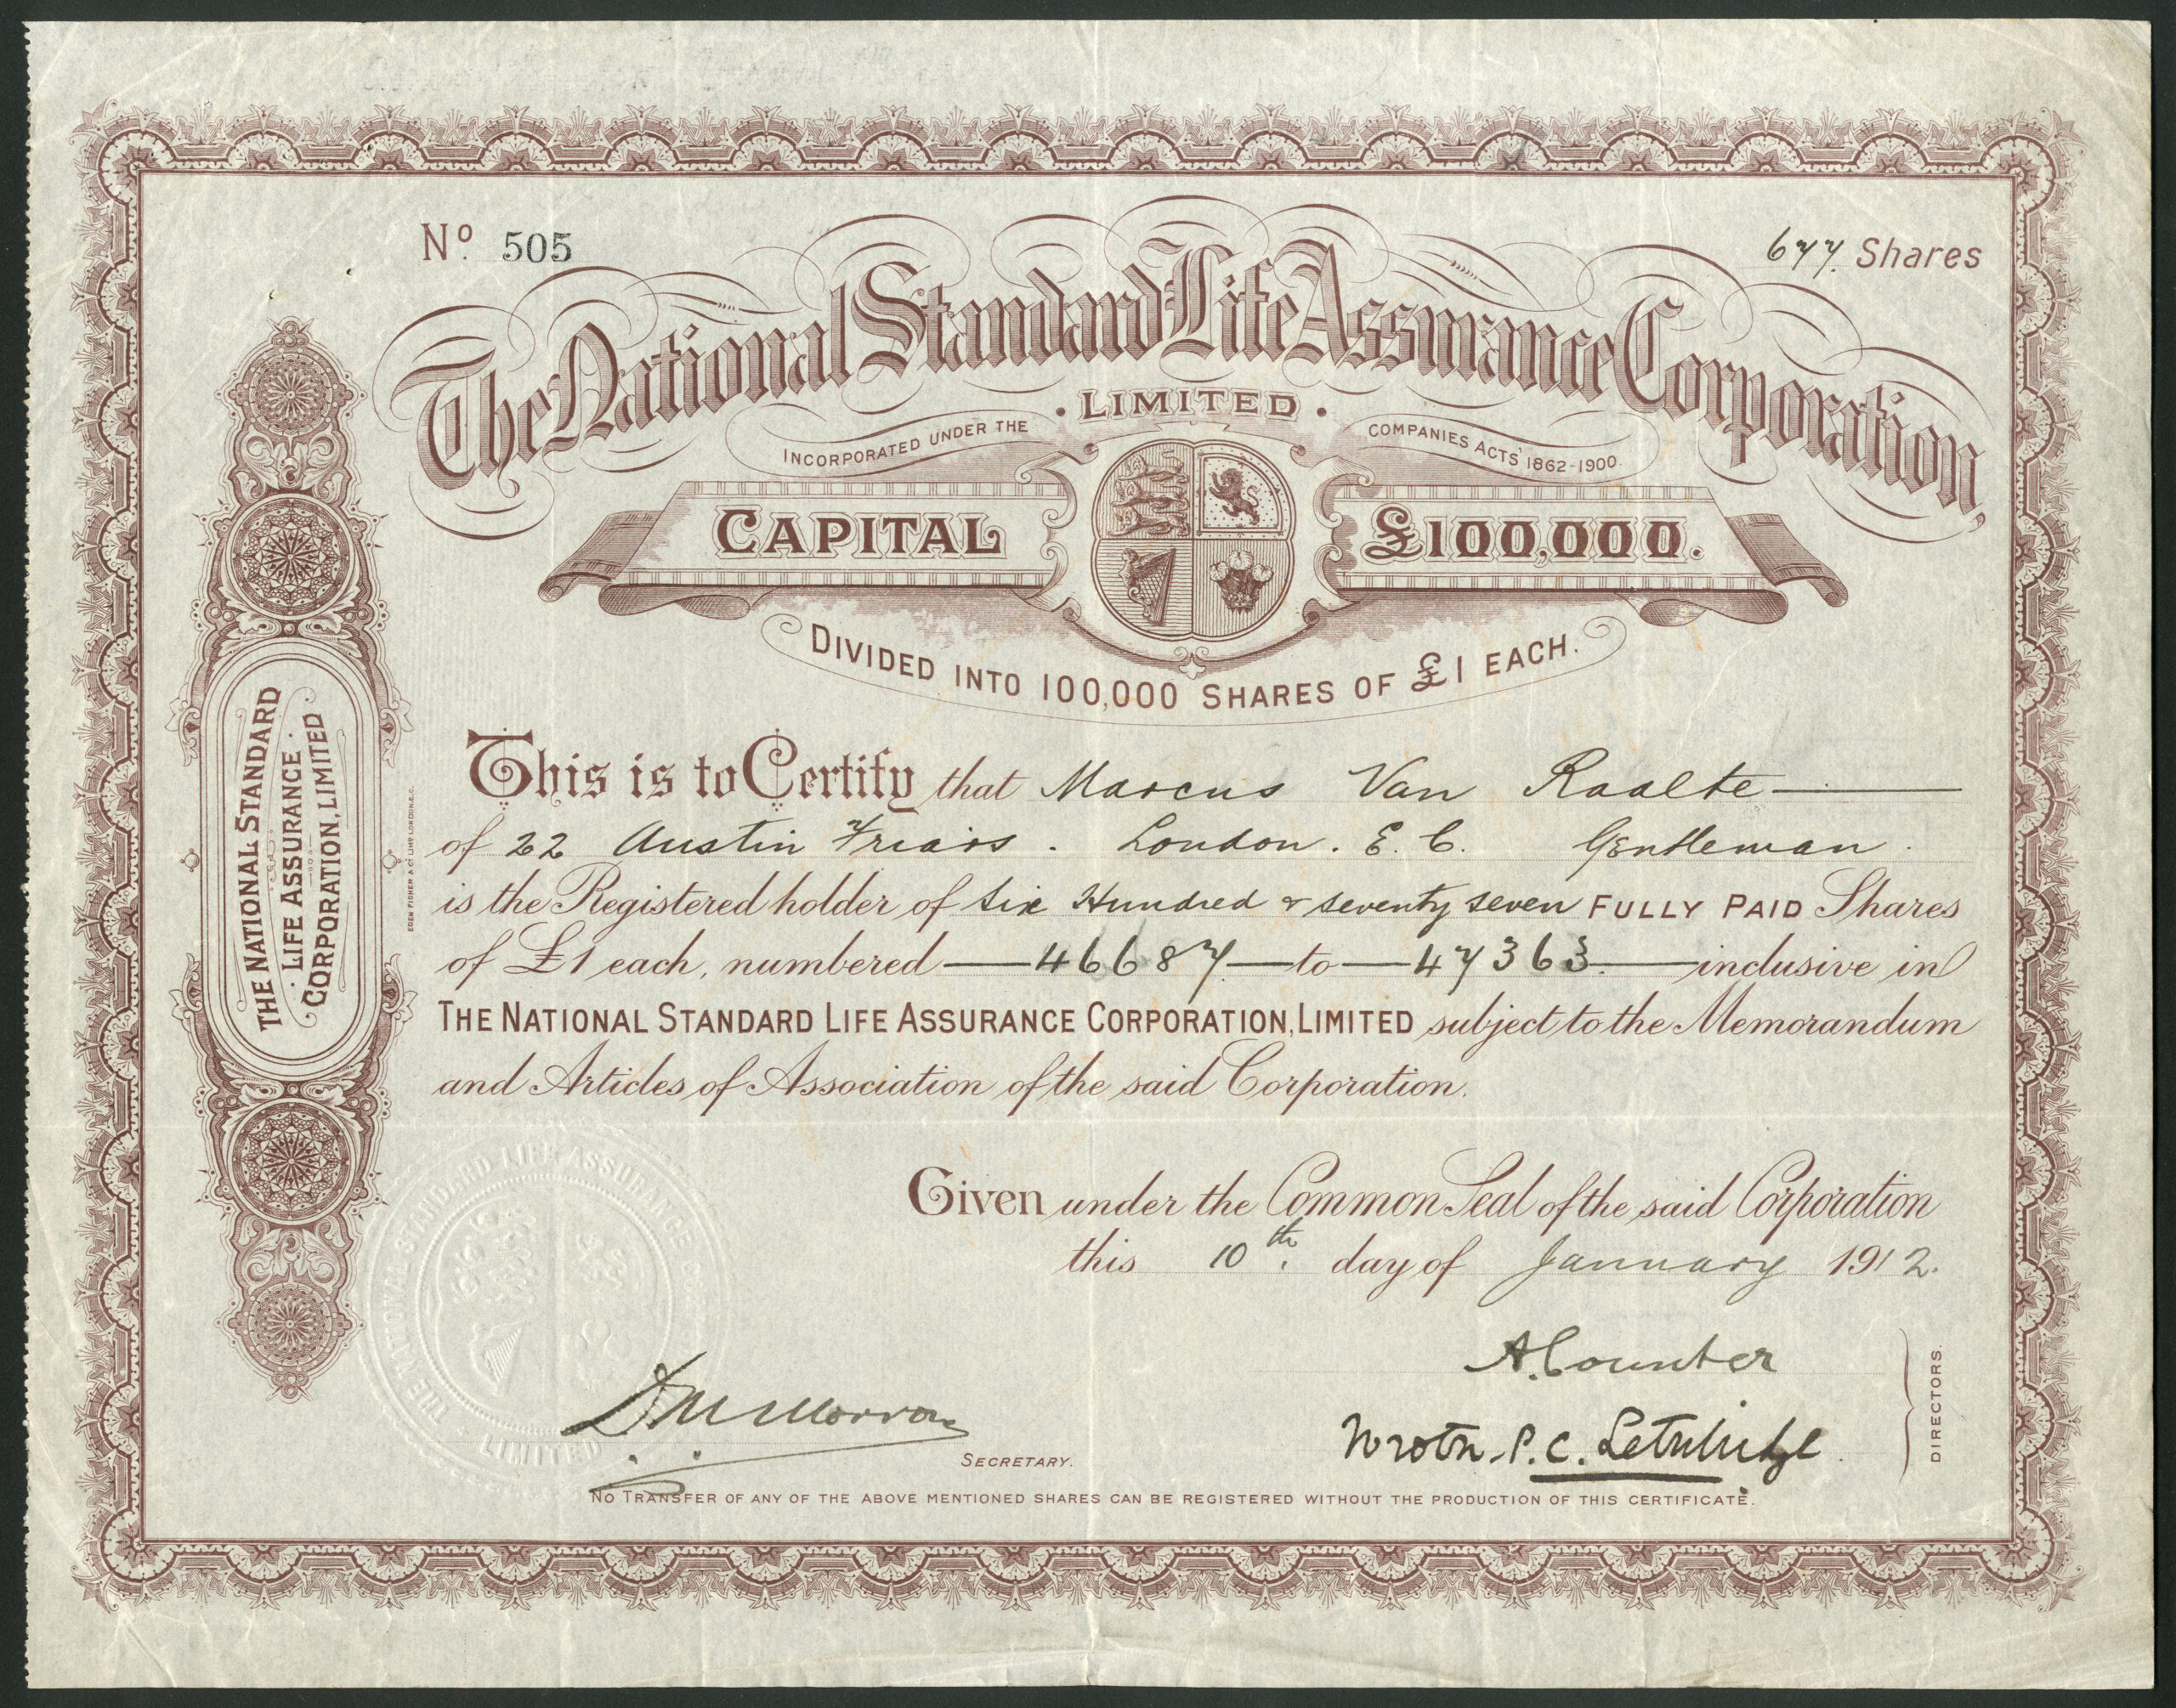 Nº. 505
677. Shares
The National Standard Life Assurance Corporation,
· LIMITED ·
INCORPORATED UNDER THE COMPANIES ACTS' 1862-1900.
CAPITAL £100,000.
DIVIDED INTO 100,000 SHARES OF £1 EACH.
This is to Certify that Marcus Van Raalte
of 22 Austin Friars. London. E. C. Gentleman.
is the Registered holder of Six Hundred & seventy seven FULLY PAID Shares
of £1 each, numbered — 46687 — to — 47363. — inclusive in
THE NATIONAL STANDARD LIFE ASSURANCE CORPORATION, LIMITED subject to the Memorandum
and Articles of Association of the said Corporation.
Given under the Common Seal of the said Corporation
this 10th. day of January 1912.
A. Counter
Wroth. P. C. Lethbridge
DIRECTORS.
SECRETARY.
NO TRANSFER OF ANY OF THE ABOVE MENTIONED SHARES CAN BE REGISTERED WITHOUT THE PRODUCTION OF THIS CERTIFICATE.
THE NATIONAL STANDARD
· LIFE ASSURANCE ·
CORPORATION, LIMITED
EDEN FISHER & Cº LIMD LONDON, E.C.
THE NATIONAL STANDARD LIFE ASSURANCE
LIMITED